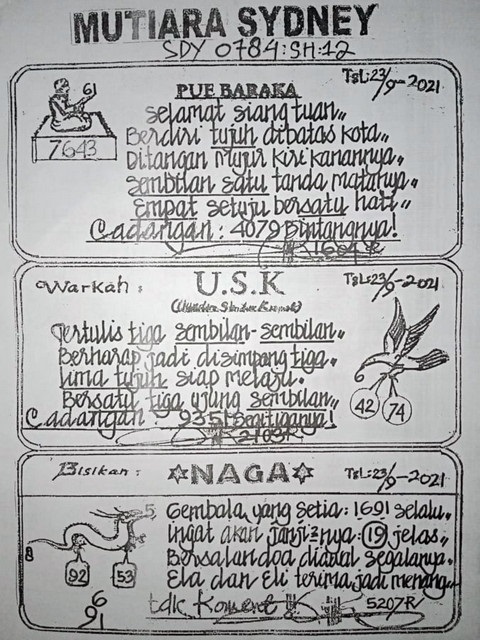 MUTIARA SYDNEY
SDY 0784:SH:12
61
7643
Tgl:23/9-2021
PUE BARAKA
Selamat siang tuan,,
Berdiri tujuh dibatas kota,,
Ditangan Mujur kiri kanannya,,
Sembilan satu tanda matanya,,
Empat setuju bersatu hati,,
Cadangan : 4079 Bintangnya!
1604 R
Warkah :
U.S.K
Tgl:23/9-2021
Tertulis tiga sembilan-sembilan,,
Berharap jadi disimpang tiga.
Lima tujuh siap melaju.
Bersatu tiga ujung sembilan,,
Cadangan : 9351 Segitiganya!
2103R
42
74
Bisikan :
NAGA
Tgl:23/9-2021
5
8
92
53
6
91
Gembala yang setia: 1691 selalu.
Ingat akan janji=nya: 19 jelas,,
Bersalan doa diawal segalanya.
Ela dan Eli terima jadi menang,,
tdk Koment
5207R